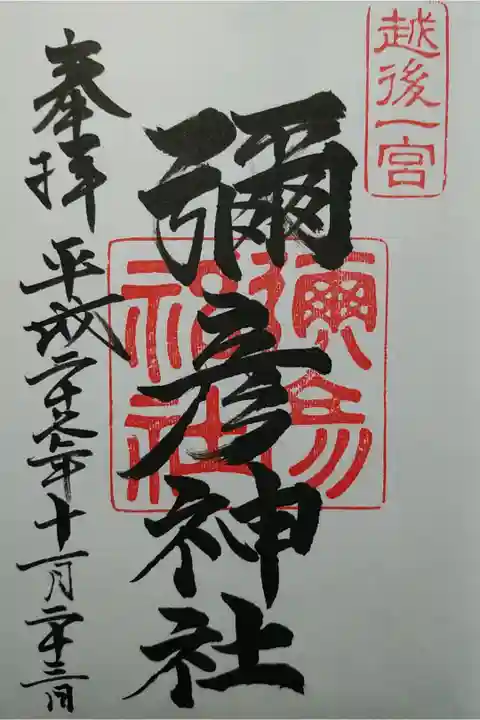 越後一宮
彌彦神社
彌彦神社
奉拝
平成二十年十一月二十三日